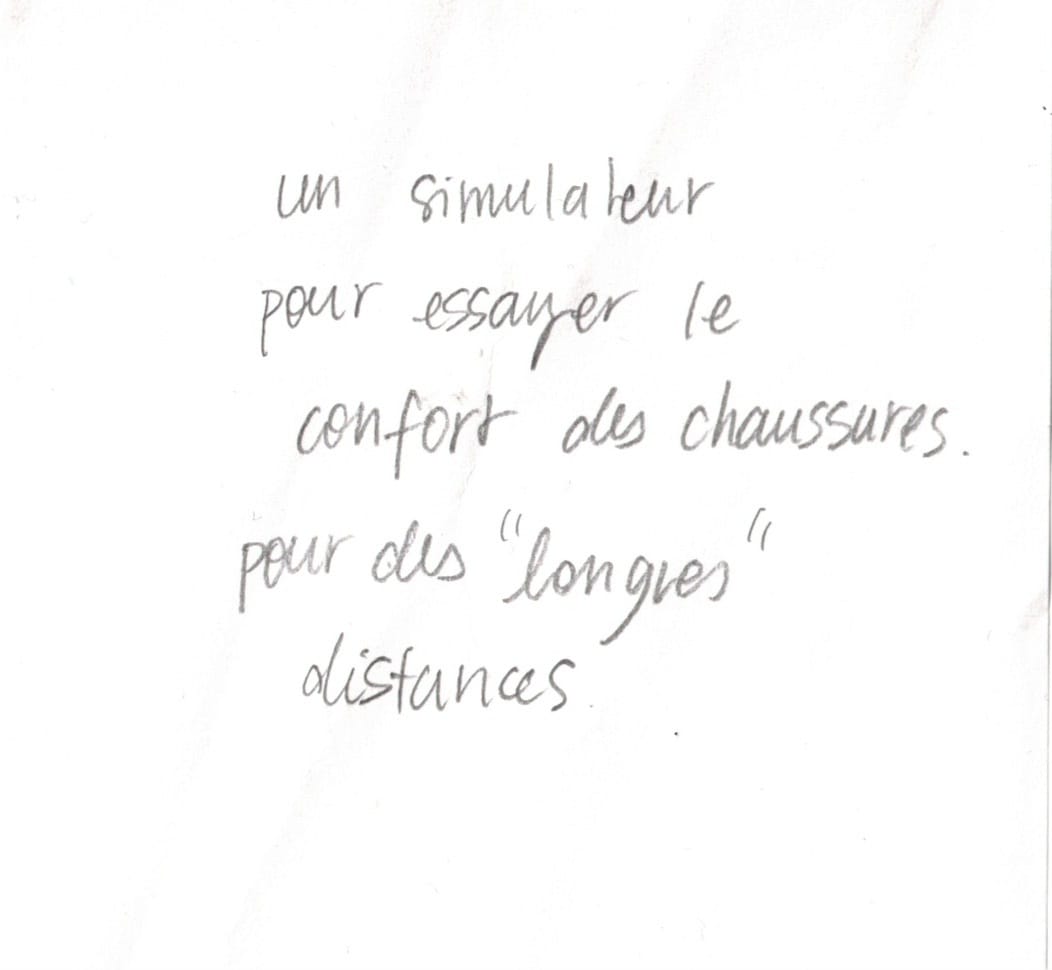 un simulateur
pour essayer le
confort des chaussures.
pour des "longues"
distances.